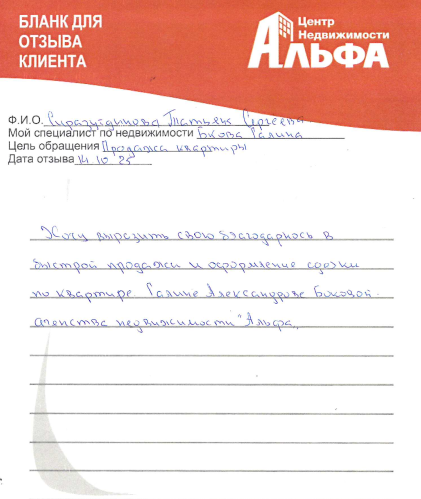 БЛАНК ДЛЯ
ОТЗЫВА
КЛИЕНТА
Центр
Недвижимости
АЛЬФА
Ф.И.О. Сиразутдинова Татьяна Сергеевна
Мой специалист по недвижимости Бкова Галина
Цель обращения Продажа квартиры
Дата отзыва 14.10.25
Хочу выразить свою благодарнось в
быстрой продажи и оформление сделки
по квартире. Галине Александровне Боковой.
агенства недвижимости "Альфа,